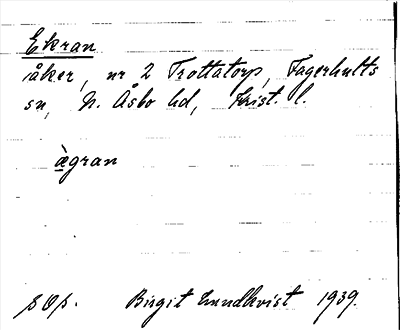 Ekran
åker, nr 2 Trottatorp, Fagerhults
sn, N. Åsbo hd, Krist. l.
àgran
Birgit Lundkvist 1939.